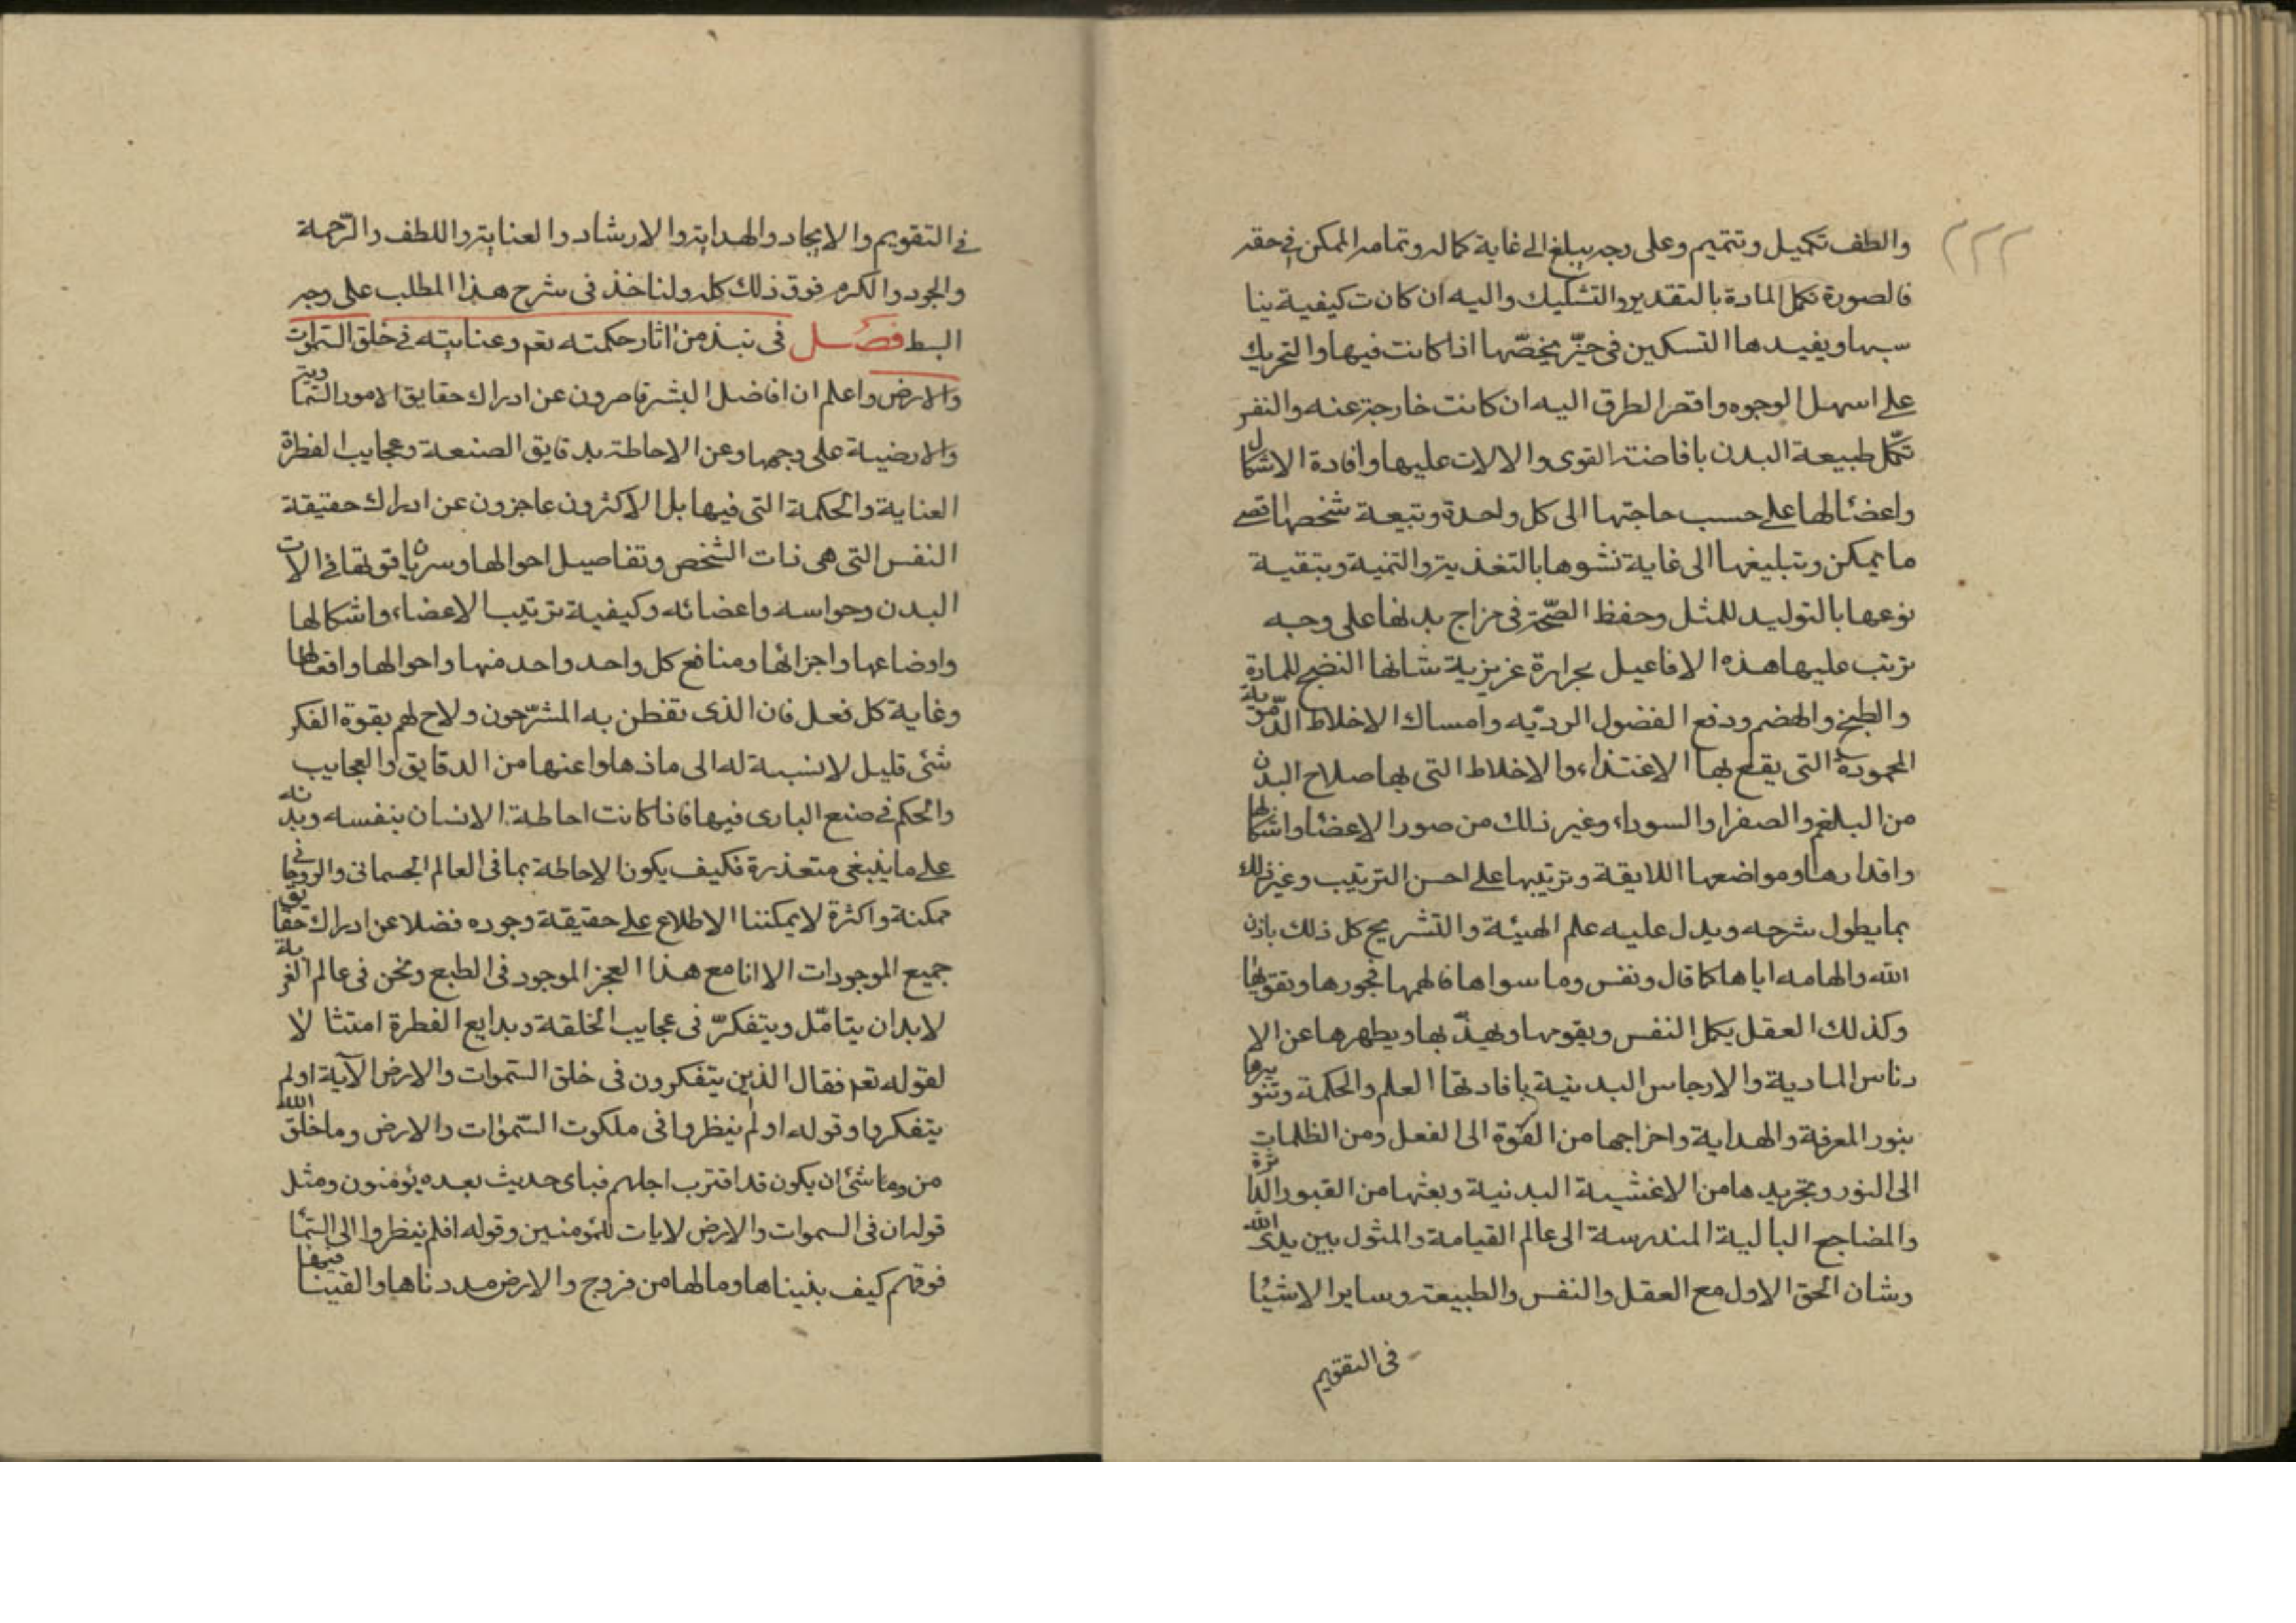 ٢٢٢
والطف تكميل وتتميم وعلى وجه يبلغ الى غاية كماله وتمامه الممكن في حقه
فالصورة تكمل المادة بالتقدير والتشكيك واليه ان كانت كيفية ينا
سبها ويفيدها التسكين في حيّز يخصّها اذا كانت فيها والتحريك
على اسهل الوجوه واقصر الطرق اليه ان كانت خارجة عنه والنفس
تكمّل طبيعة البدن بافاضة القوى والالات عليها وافادة الاشكال
واعضائها على حسب حاجتها الى كل واحدة وتبعة شخصها اقصى
ما يمكن وتبليغها الى غاية نشوها بالتغذية والتنمية وتبقية
نوعها بالتوليد للمثل وحفظ الصّحة في مزاج بدنها على وجه
ترتب عليها هذه الافاعيل بحرارة غريزية شانها النضج للمادة
والطبخ والهضم ودفع الفضول الرديّه وامساك الاخلاط الدّموية
المحمودة التى يقع بها الاغتذاء والاخلاط التى بها صلاح البدن
من البلغم والصفرا والسوداء وغير ذلك من صور الاعضا واشكالها
واقدارها ومواضعها اللايقة وترتيبها على احسن الترتيب وغير ذلك
بما يطول شرحه ويدل عليه علم الهيئة والتشريح كل ذلك باذن
الله والهامه اياها كما قال ونفس وما سواها فالهمها فجورها وتقويها
وكذلك العقل يكمل النفس ويقومها ويهذّبها ويطهرها عن الا
دناس المادية والارجاس البدنية بافادتها العلم والحكمة وتنويرها
بنور المعرفة والهداية واخراجها من القوة الى الفعل ومن الظلمات
الى النور وتجريدها من الاغشية البدنية وبعثها من القبور الداثرة
والمضاجع البالية المندرسة الى عالم القيامة والمثول بين يدى الله
وشان الحق الاول مع العقل والنفس والطبيعة وساير الاشيئا
فى التقويم
في التقويم والايجاد والهداية والارشاد والعناية واللطف والرّحمة
والجود والكرم فوق ذلك كله ولناخذ فى شرح هذا المطلب على وجه
البسط فصل فى نبذ من اثار حكمته تعم وعنايته في خلق السموات
والارض واعلم ان افاضل البشر قاصرون عن ادراك حقايق الامور السماوية
والارضية على وجهها وعن الاحاطة بدقايق الصنعة وعجايب الفطرة
العناية والحكمة التى فيها بل الاكثرون عاجزون عن ادراك حقيقة
النفس التى هى ذات الشخص وتفاصيل احوالها وسريان قوتها في الالات
البدن وحواسه واعضائه وكيفية ترتيب الاعضاء واشكالها
واوضاعها واجزائها ومنافع كل واحد واحد منها واحوالها وافعالها
وغاية كل فعل فان الذى تفطن به المشرّحون ولاح لهم بقوة الفكر
شئ قليل لا نسبة له الى ما ذهلوا عنها من الدقايق والعجايب
والحكم في صنع البارى فيها فاذا كانت احاطة الانسان بنفسه وبدنه
على ما ينبغى متعذرة فكيف يكون الاحاطة بما فى العالم الجسمانى والروحانى
ممكنة واكثرة لا يمكننا الاطلاع على حقيقة وجوده فضلا عن ادراك حقايق
جميع الموجودات الا انا مع هذا العجز الموجود فى الطبع ونحن فى عالم الغربة
لا بد ان يتامّل ويتفكرّ فى عجايب الخلقة وبدايع الفطرة امتثالا
لقوله تعم فقال الذين يتفكرون فى خلق السموات والارض الآية اولم
يتفكروا وقوله اولم ينظروا فى ملكوت السّموات والارض وما خلق الله
من وما شئ ان يكون قد اقترب اجلهم فباى حديث بعده يؤمنون ومثل
قوله ان فى السموات والارض لايات للمؤمنين وقوله افلم ينظروا الى السّما
فوقهم كيف بنيناها وما لها من فروج والارض مددناها والقينا فيها